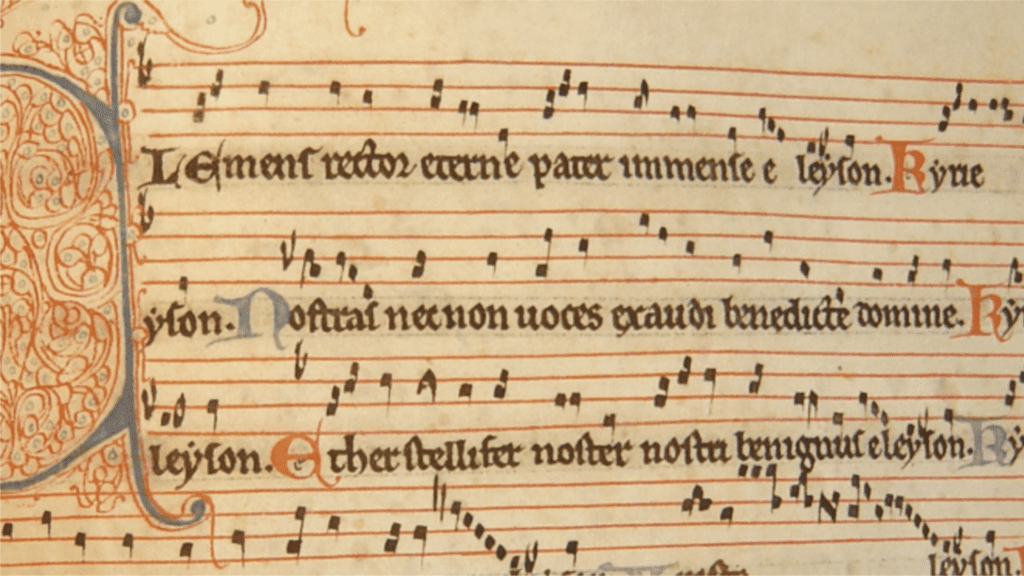 CLEmens rector eterne pater immense e leyson. Kyrie
yson. Nostras necnon uoces exaudi benedicte domine. Ky
leyson. Ether stellifer noster nostri benignus eleyson. Ky
leyson.